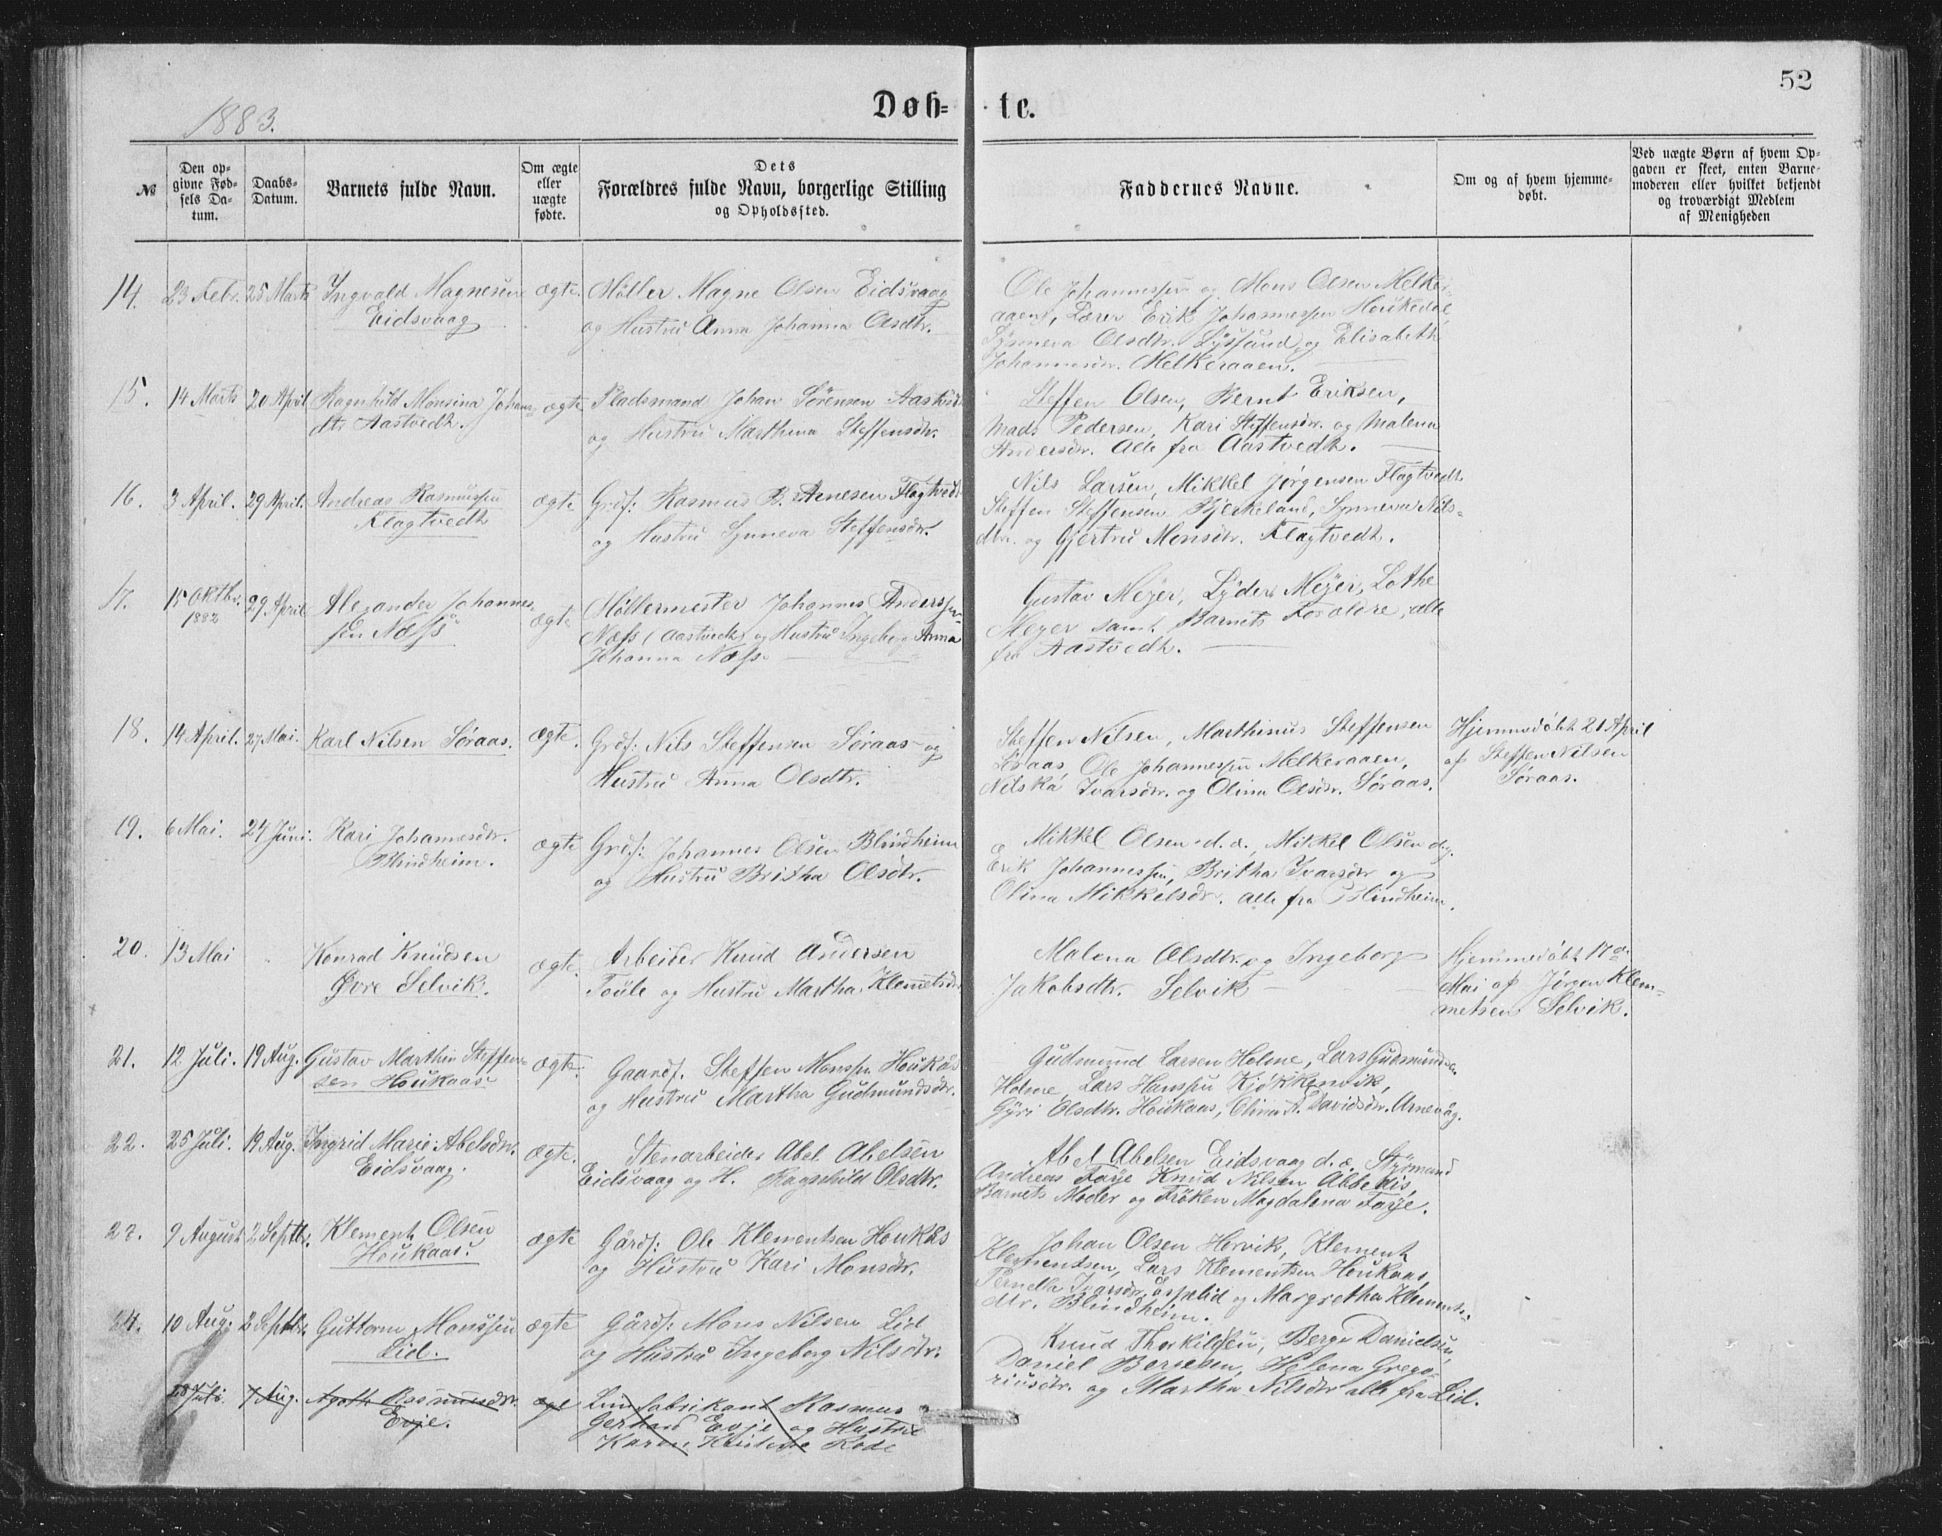 52
1883.
Døb- te.
№
Den op-
givne Fød-
sels Da-
tum.
Daabs-
Datum.
Barnets fulde Navn.
Om ægte
eller
uægte
fødte.
Dets
Forældres fulde Navn, borgerlige Stilling
og Opholdssted.
Faddernes Navne.
Om og af hvem hjemme-
døbt.
Ved uægte Børn af hvem Op-
gaven er skeet, enten Barne-
moderen eller hvilket bekjendt
og troværdigt Medlem
af Menigheden
14. 23 Febr. 25 Marts Ingvald Magnesen
Eidsvaag
ægte.
Møller Magne Olsen Eidsvaag
og Hustru Anna Johanna Olsdtr.
Ole Johannessen og Mons Olsen Melker-
aaen, Lærer Erik Johannessen Houkedal
Synneva Olsdtr. Lysfund og Elisabeth
Johannesdr. Melkeraaen.
15. 14 Marts 20 April Ragnhild Monsina Johans-
dtr Aastvedt.
ægte
Pladsmand Johan Sørensen Aastvedt
og Hustru Marthina Steffensdr.
Steffen Olsen, Bernt Eriksen,
Mads Pedersen, Kari Steffensdr. og Malena
Andersdr. alle fra Aastvedt.
16. 3 April. 29 April. Andreas Rasmussen
Flagtvedt
ægte
Grdf: Rasmus B. Arnesen Flagtvedt
og Hustru Synneva Steffensdr.
Nils Larsen, Mikkel Jørgensen Flagtvedt
Steffen Steffensen Bjerkeland, Synneva Nils-
dtr. og Gjertru Monsdr. Flagtvedt.
17. 15 Oktbr. 1882 29 April Alexander Johannes-
sen Næss
ægte
Møllermester Johannes Anderssen
Næss (Aastvedt) og Hustru Ingeborg Anna
Johanna Næss.
Gustav Meyer, Lyder Meyer, Lothe
Meyer samt Barnets Forældre, alle
fra Aastvedt.
18. 14 April. 27 Mai. Karl Nilsen Søraas.
ægte.
Grdf: Nils Steffensen Søraas og
Hustru Anna Olsdtr.
Steffen Nilsen, Marthinus Steffensen
Søraas, Ole Johannessen Melkeraaen,
Nilska Ivarsdr. og Olina Olsdr. Søraas.
Hjemmedøbt 21 April
af Steffen Nilsen
Søraas.
19. 6 Mai. 24 Juni. Kari Johannesdr.
Blindheim.
ægte
Grdf: Johannes Olsen Blindheim
og Hustru Britha Olsdtr.
Mikkel Olsen d.æ., Mikkel Olsen d.y.
Erik Johannessen, Britha Ivarsdr og
Olina Mikkelsdr. alle fra Blindheim.
20. 13 Mai Konrad Knudsen
Øvre Selvik.
ægte.
Arbeider Knud Andersen
og Hustru Martha Klemetsdr.
Malena Olsdtr. og Ingeborg
Jakobsdtr. Selvik
Hjemmedøbt 17de
Mai af Jørgen Klem-
metsen Selvik.
21. 12 Juli. 19 Aug. Gustav Marthin Steffen-
sen Houkaas
ægte.
Gaardf. Steffen Monsen Houkås
og Hustru Martha Gudmundsdr.
Gudmund Larsen Holme, Lars Gudmundsen
Holme, Lars Hanssen Kjøkkenvik,
Gyri Olsdtr. Houkaas, Olina Davidsdr. Arnevåg.
22. 25 Juli. 19 Aug. Ingrid Marie Abelsdr.
Eidsvaag.
ægte.
Stenarbeider Abel Abelsen
Eidsvaag og H. Ragnhild Olsdtr.
Abel Abelsen Eidsvaag d.æ. Styrmand
Andreas Farje Knud Nilsen
Barnets Moder og Frøken Magdalena Farje.
23. 9 August 2 Septbr. Klement Olsen
Houkaas.
ægte
Gårdf: Ole Klementsen Houkås
og Hustru Kari Monsdr.
Johan Olsen Hervik, Klement
Klementsen, Lars Klementsen Houkaas,
Pernella Ivarsdr. Espelid og Margretha Klements-
dtr. Blindheim.
24. 10 Aug. 2 Septbr. Guttorm Monssen
Lid.
ægte
Gårdf: Mons Nilsen Lid
og Hustru Ingeborg Nilsdr.
Knud Thorkildsen, Berge Danielsen
Daniel Bersesen, Helena Grego-
riusdr. og Martha Nilsdr alle fra Lid.
28 Juli. 7 Aug. Agathe Rasmusdr.
Evje.
ægte
Limfabrikant Rasmus
Gerhard Evje og Hustru
Karen Kristense Rode